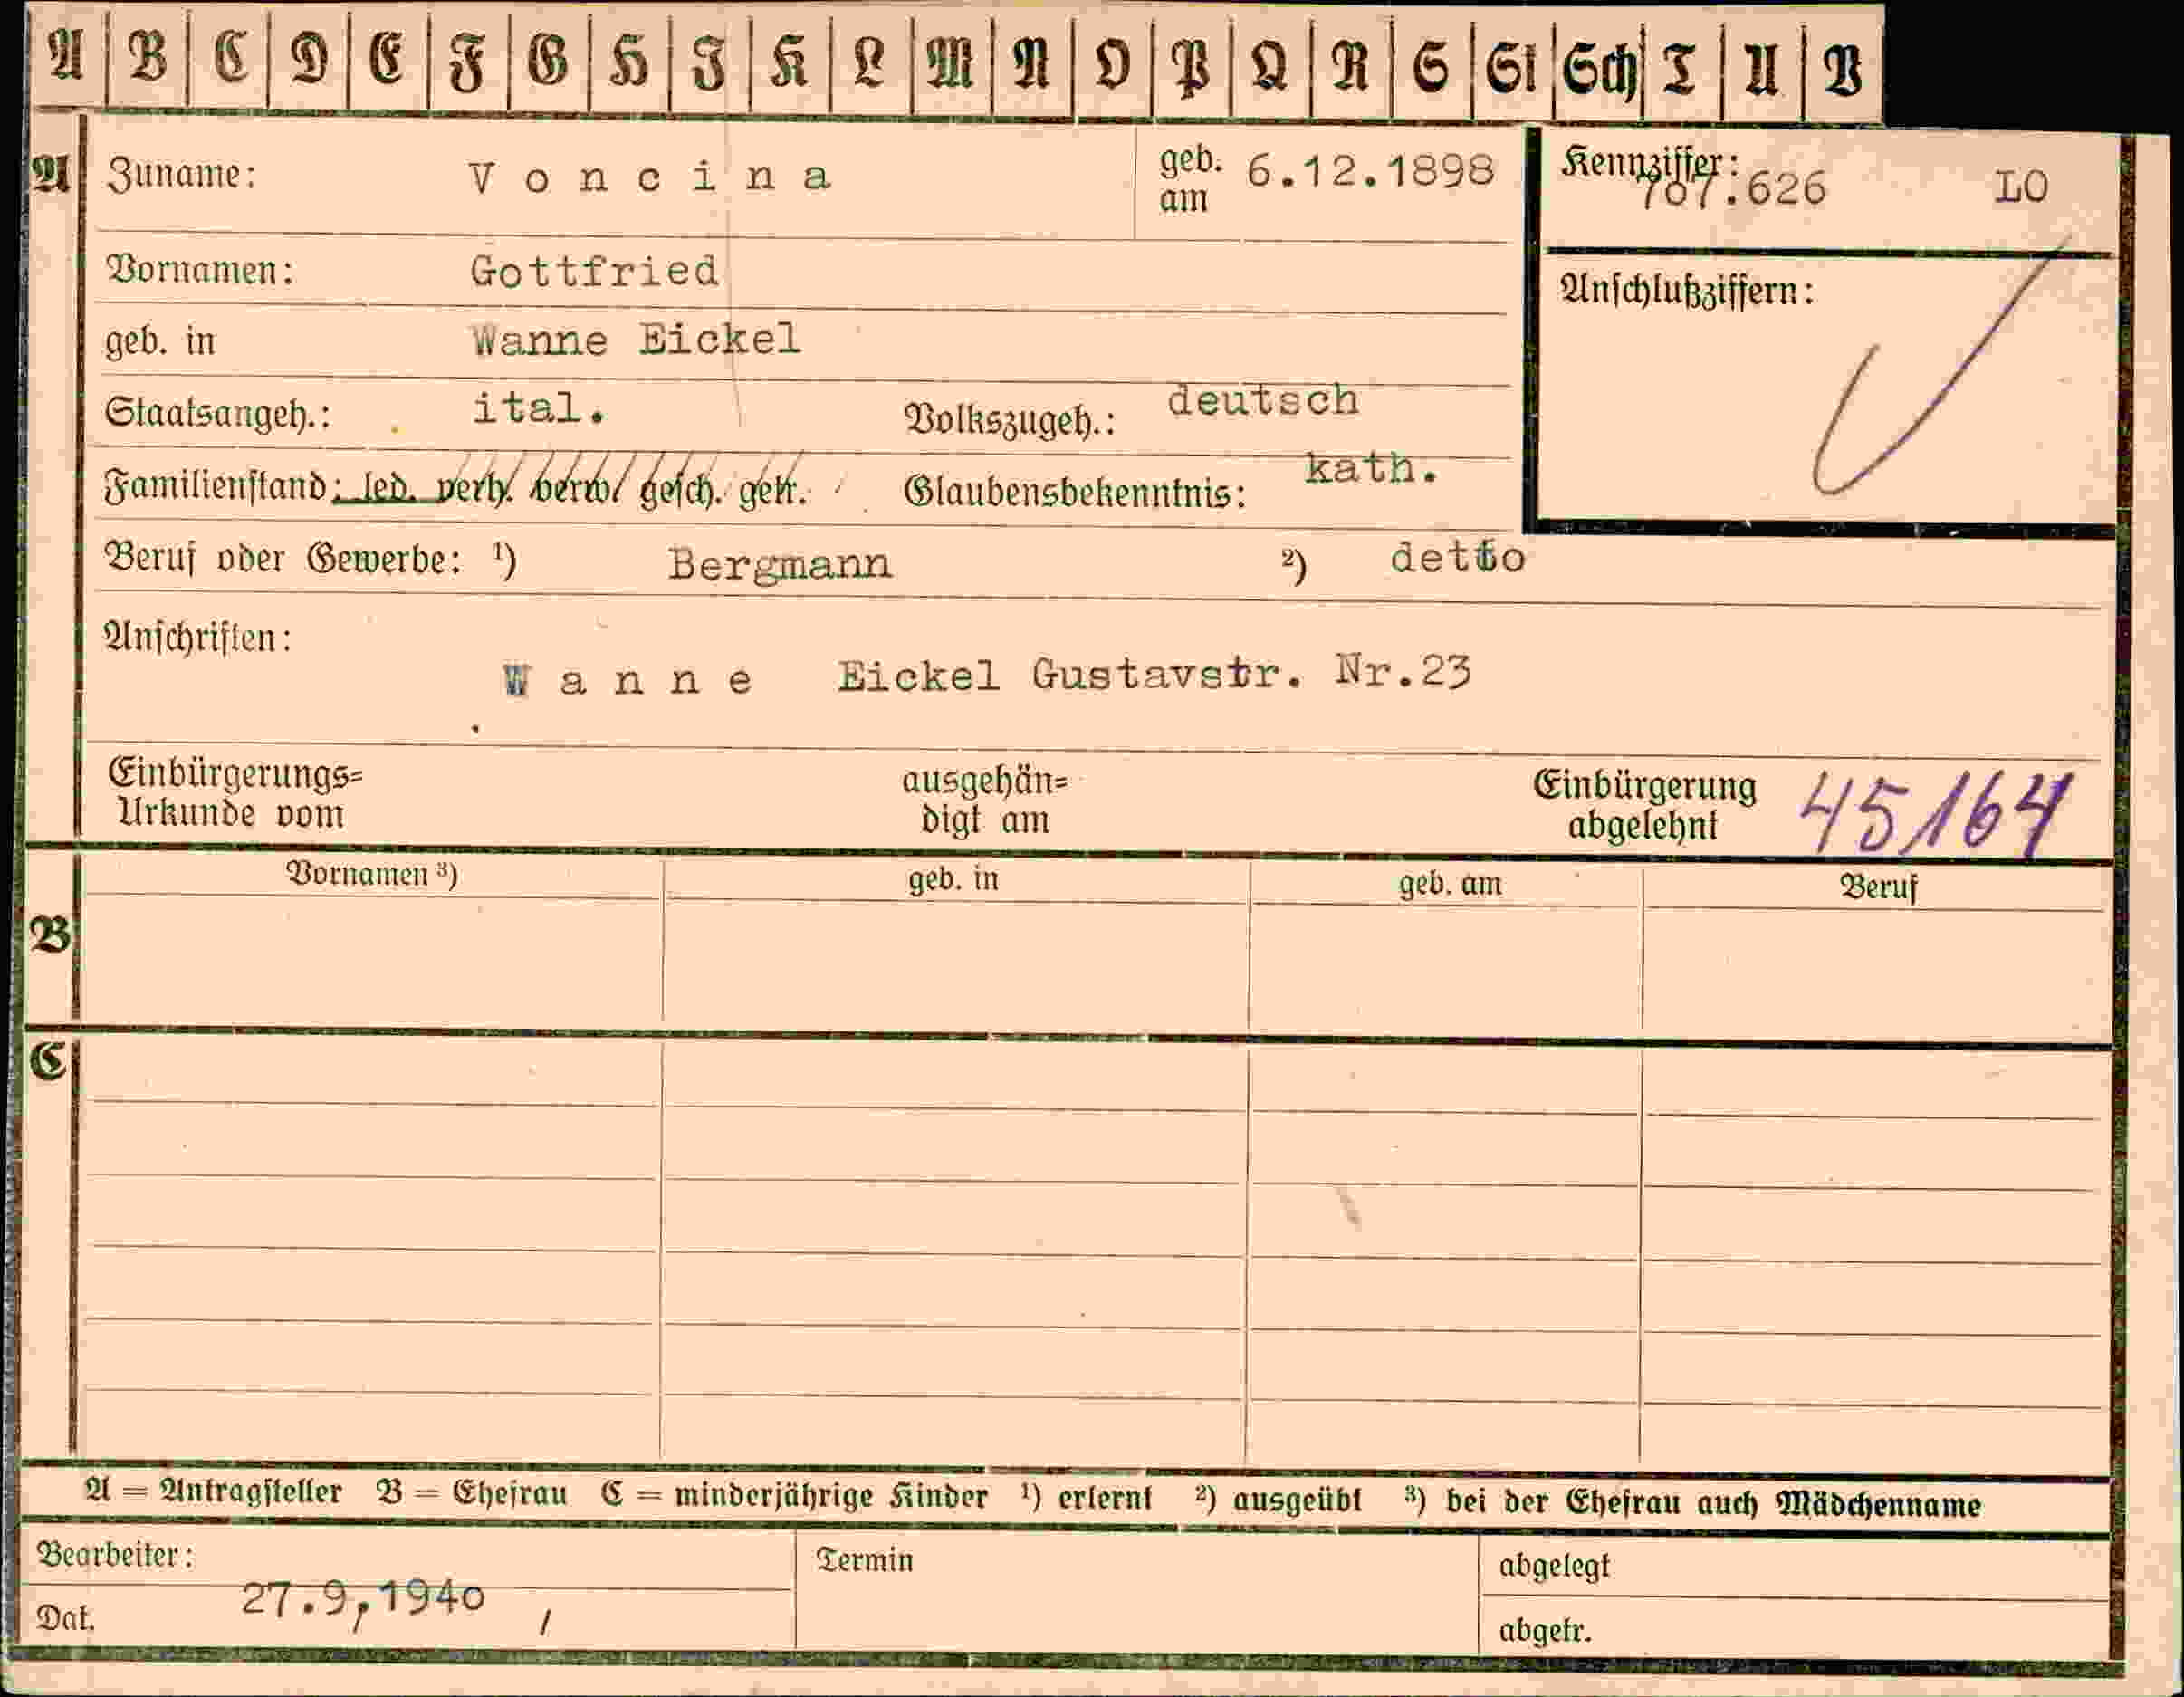 A B C D E F G H J K L M N O P Q R S St Sch T U V
A Zuname: Voncina geb. am 6.12.1898 Kennziffer: 707.626 LO
Vornamen: Gottfried Anschlußziffern:
geb. in Wanne Eickel
Staatsangeh.: ital. Volkszugeh.: deutsch
Familienstand: led. verh. verw. gesch. getr. Glaubensbekenntnis: kath.
Beruf oder Gewerbe: ¹) Bergmann ²) detto
Anschriften:
Wanne Eickel Gustavstr. Nr.23
Einbürgerungs= ausgehän= Einbürgerung 45164
Urkunde vom digt am abgelehnt
B Vornamen ³) geb. in geb. am Beruf
C
A = Antragsteller B = Ehefrau C = minderjährige Kinder ¹) erlernt ²) ausgeübt ³) bei der Ehefrau auch Mädchenname
Bearbeiter: Termin abgelegt
Dat. 27.9,1940 abgetr.